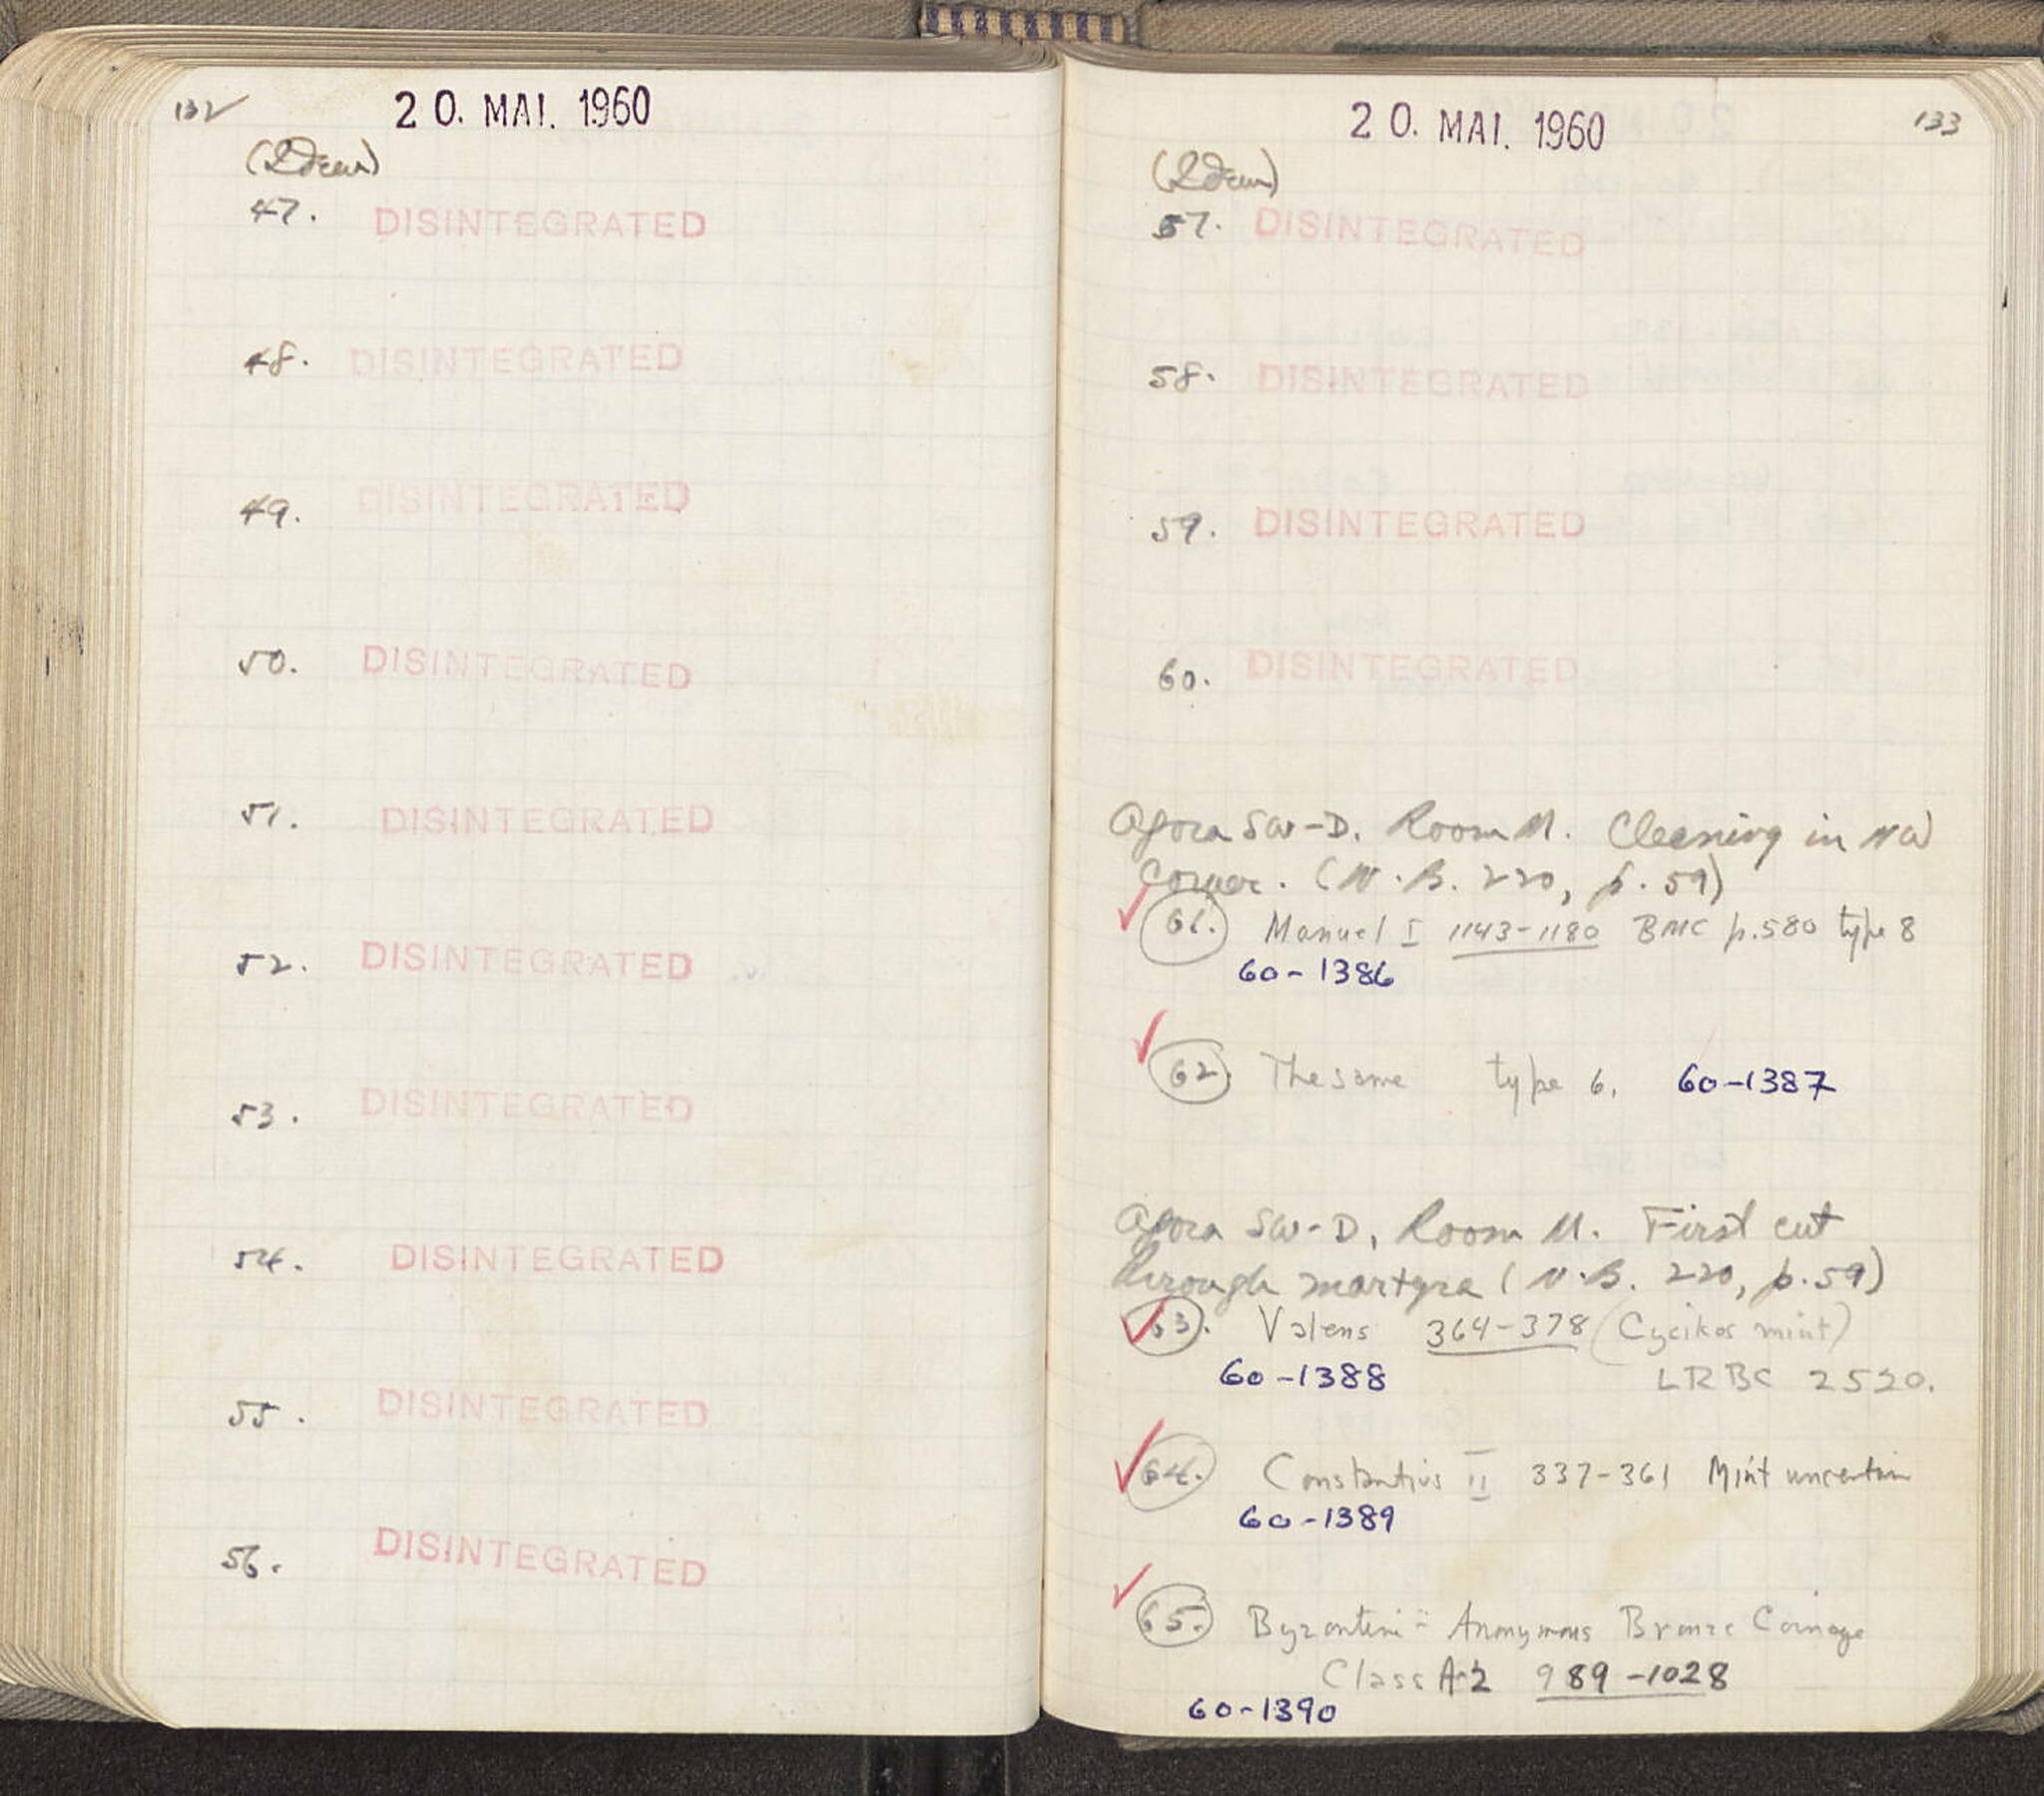 132
20. MAI. 1960
(Idem)
47. DISINTEGRATED
48. DISINTEGRATED
49. DISINTEGRATED
50. DISINTEGRATED
51. DISINTEGRATED
52. DISINTEGRATED
53. DISINTEGRATED
54. DISINTEGRATED
55. DISINTEGRATED
56. DISINTEGRATED
133
20. MAI. 1960
(Idem)
57. DISINTEGRATED
58. DISINTEGRATED
59. DISINTEGRATED
60. DISINTEGRATED
Agora SW-D. Room M. Cleaning in NW
Corner. (N.B. 220, p. 59)
61. Manuel I 1143-1180 BMC p.580 type 8
60-1386
62. The same type 6. 60-1387
Agora SW-D, Room M. First cut
through martyra (N.B. 220, p.59)
63. Valens 364-378 (Cyzikos mint)
60-1388 LRBC 2520.
64. Constantius II 337-361 Mint uncertain
60-1389
65. Byzantine Anonymous Bronze Coinage
Class A-2 989-1028
60-1390